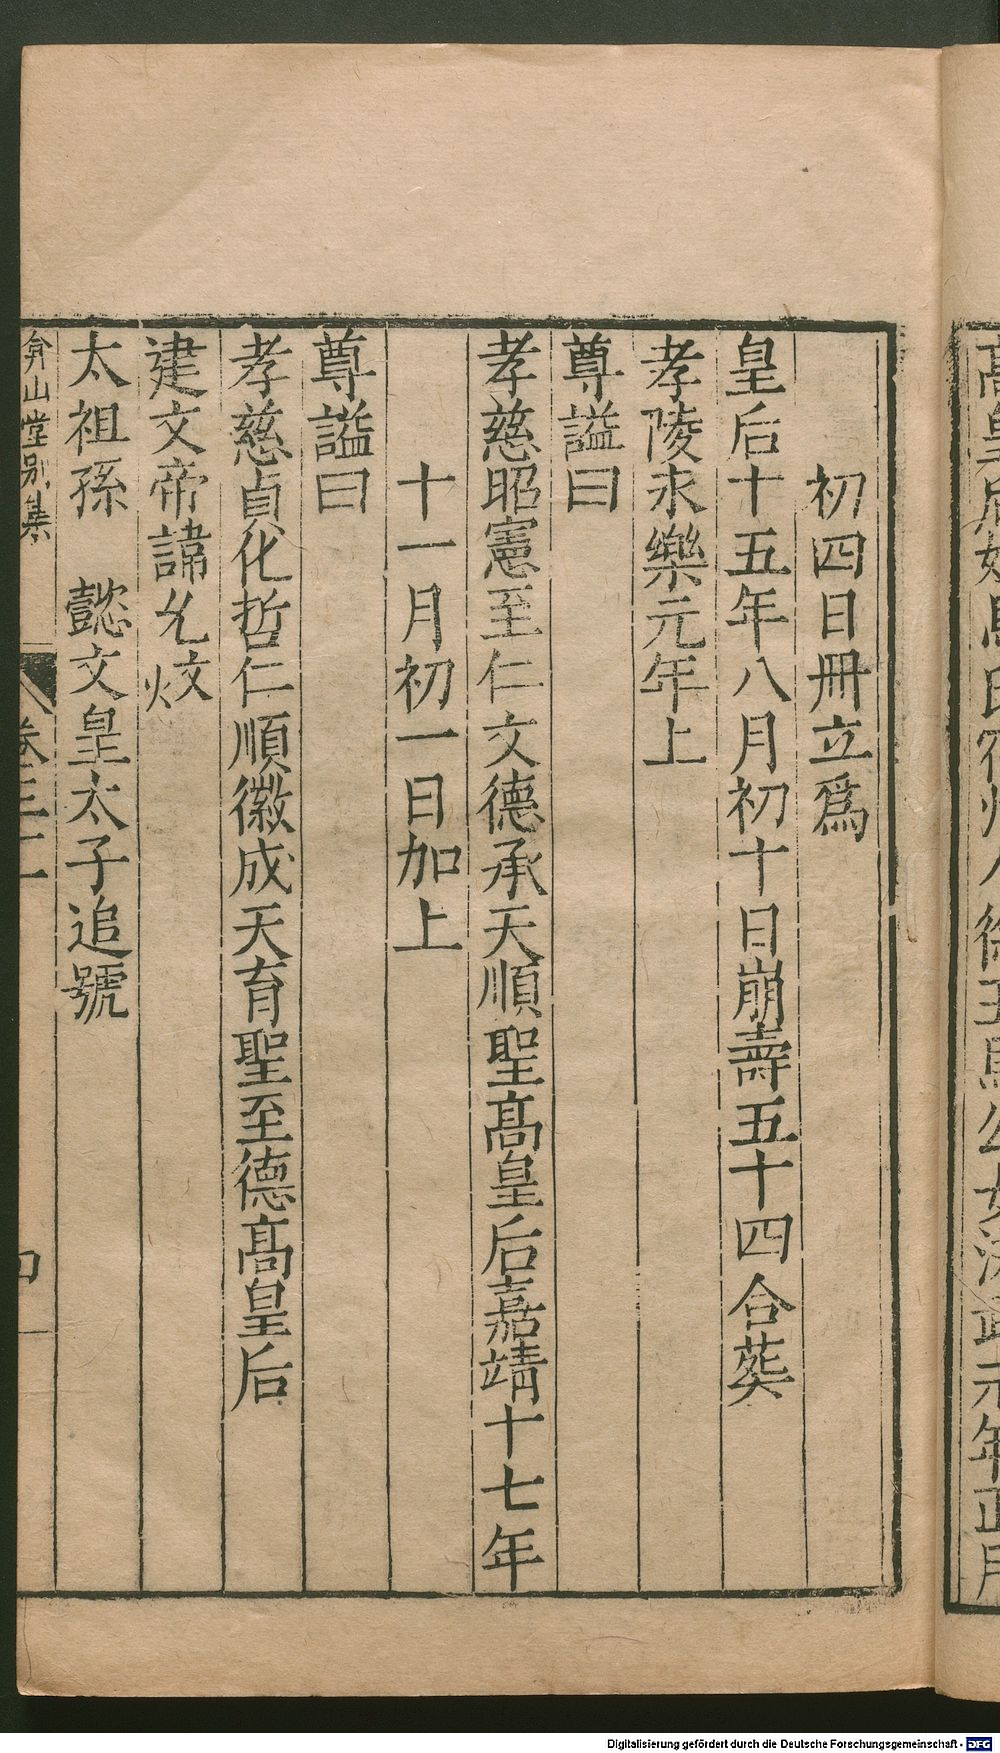 初四日冊立爲
皇后十五年八月初十日崩壽五十四合葬
孝陵永樂元年上
尊謚曰
孝慈昭憲至仁文德承天順聖高皇后嘉靖十七年
十一月初一日加上
尊謚曰
孝慈貞化哲仁順徽成天育聖至德高皇后
建文帝諱允炆
太祖孫 懿文皇太子追號
弇山堂別集 卷三一
Digitalisierung gefördert durch die Deutsche Forschungsgemeinschaft - DFG